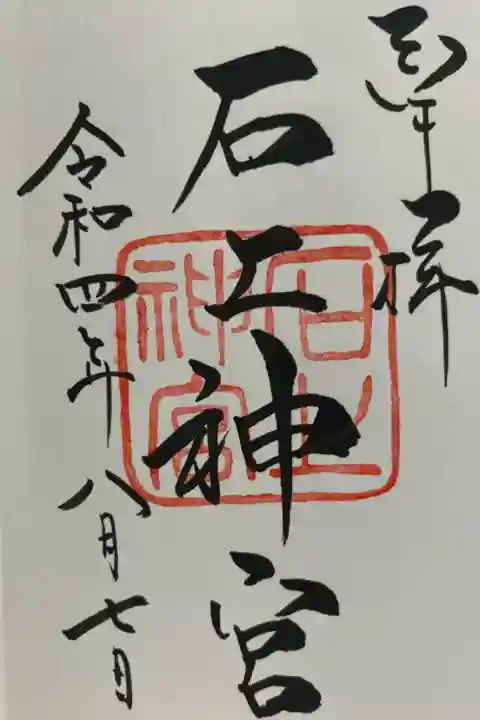 奉拝
石上神宮
石上神宮
令和四年八月七日